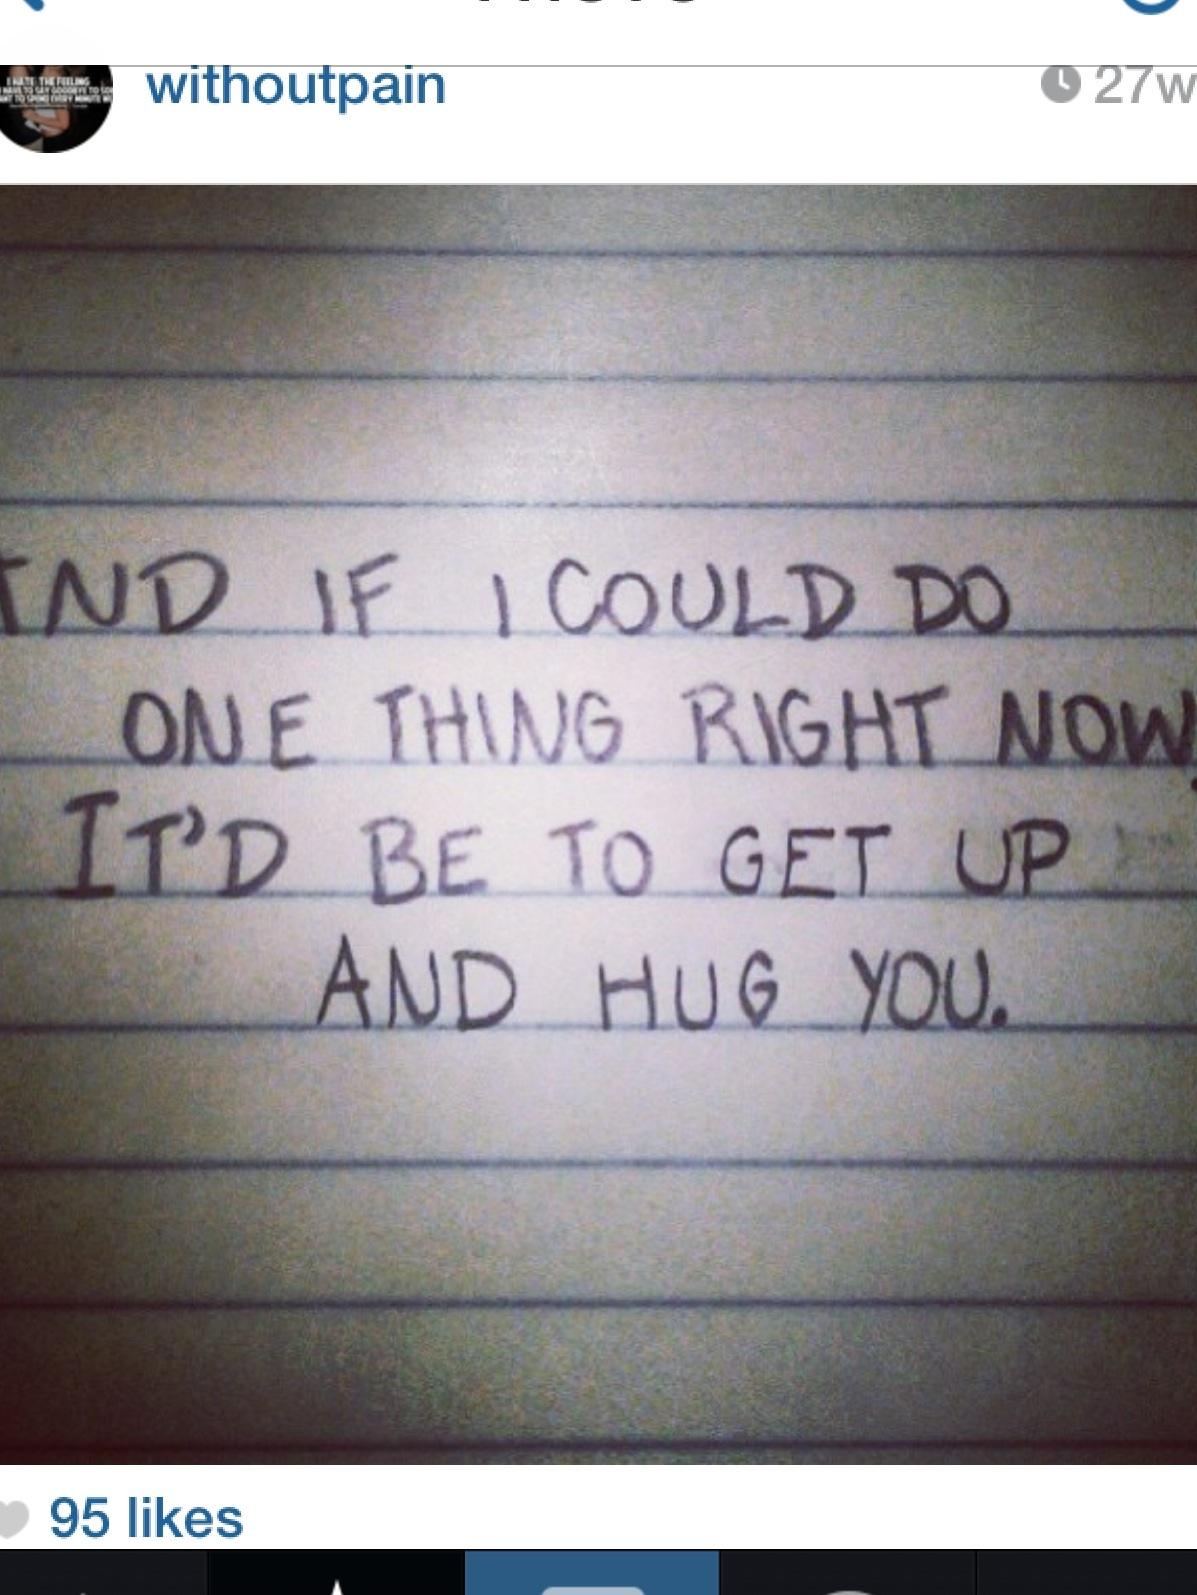 withoutpain
27w
AND IF I COULD DO
ONE THING RIGHT NOW,
IT'D BE TO GET UP
AND HUG YOU.
95 likes